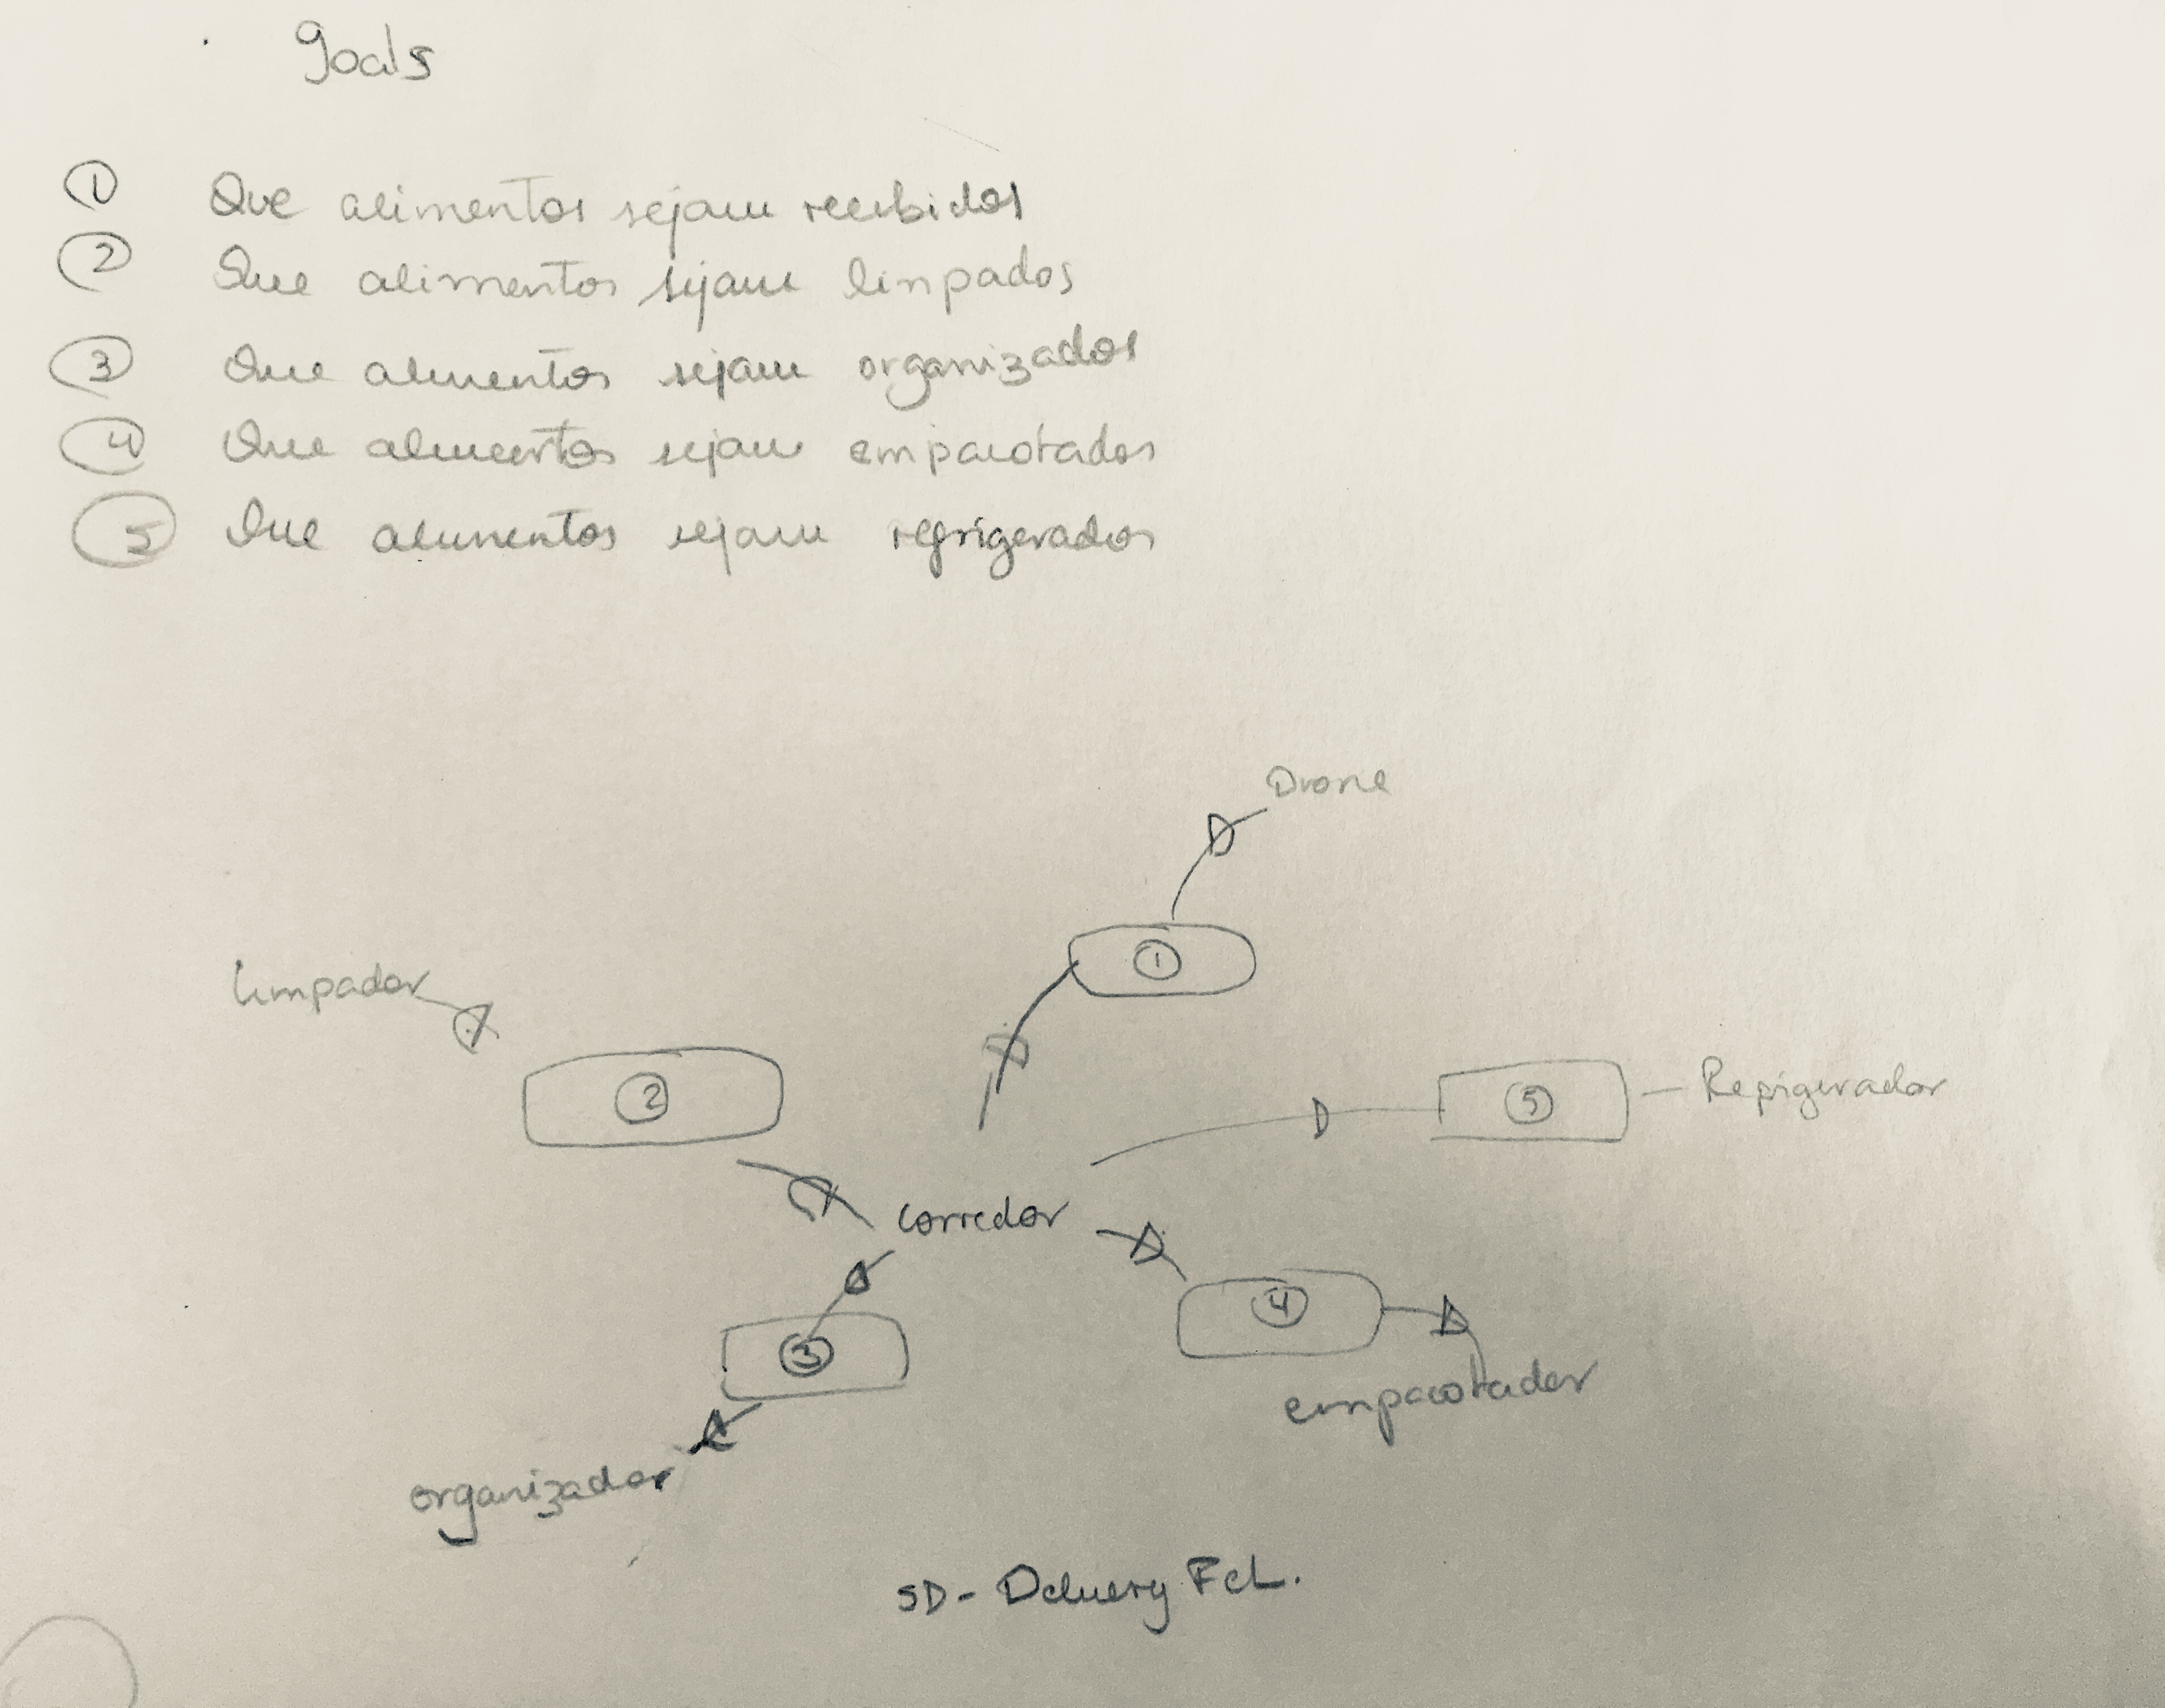 goals
① Que alimentos sejam recebidos
② Que alimentos sejam limpados
③ Que alimentos sejam organizados
④ Que alimentos sejam empacotados
⑤ Que alimentos sejam refrigerados
Drone
①
limpador
②
⑤ Refrigerador
corredor
④
③
empacotador
organizador
SD- Delivery FCL.